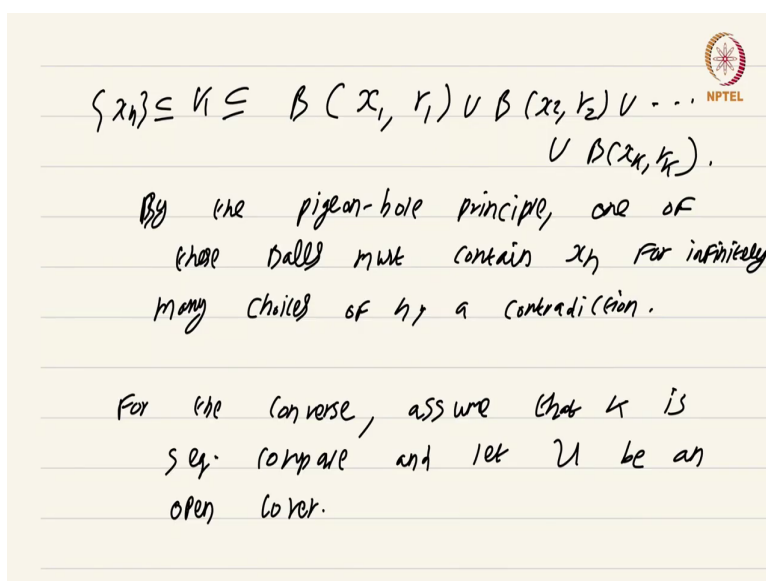 NPTEL
{xn} ⊆ K ⊆ B(x1, r1) ∪ B(x2, r2) ∪ ...
∪ B(xk, rk).
By the pigeon-hole principle, one of
these balls must contain xn for infinitely
many choices of n, a contradiction.
For the converse, assume that K is
seq. compact and let U be an
open cover.